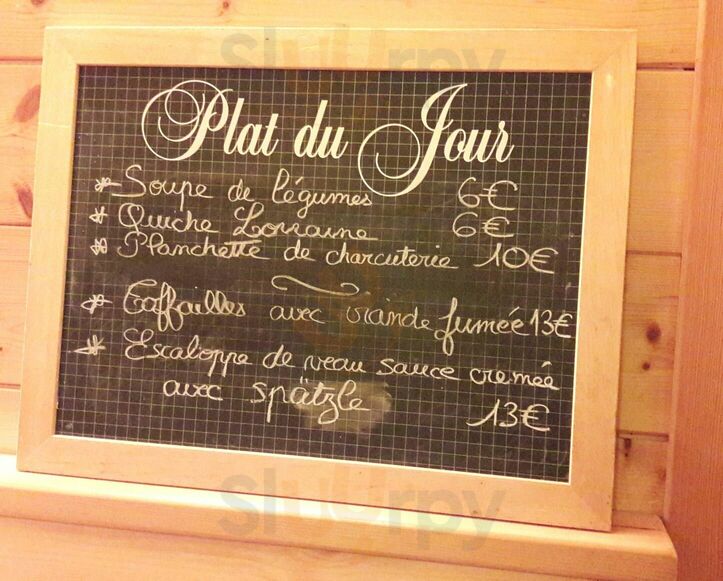 Slurrpy
Plat du Jour
* Soupe de légumes 6€
* Quiche Lorraine 6€
* Planchette de charcuterie 10€
* Toffailles avec viande fumée 13€
* Escaloppe de veau sauce cremée
avec spätzle 13€
Slurrpy